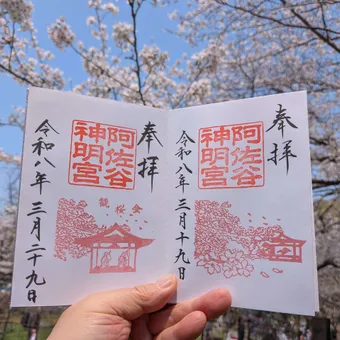 奉拝
阿佐谷
神明宮
令和八年
三月十九日
奉拝
阿佐谷
神明宮
令和八年
三月二十九日